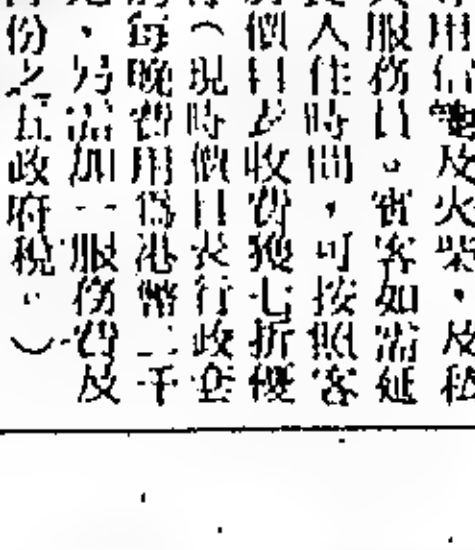 用信箋及火柴，及私
服務員。賓客如需延
人住時間，可按照客
價目表收費獲七折優
（現時價目表行政套
每晚費用為港幣二千
，另需加一服務費及
份之五政府稅。）